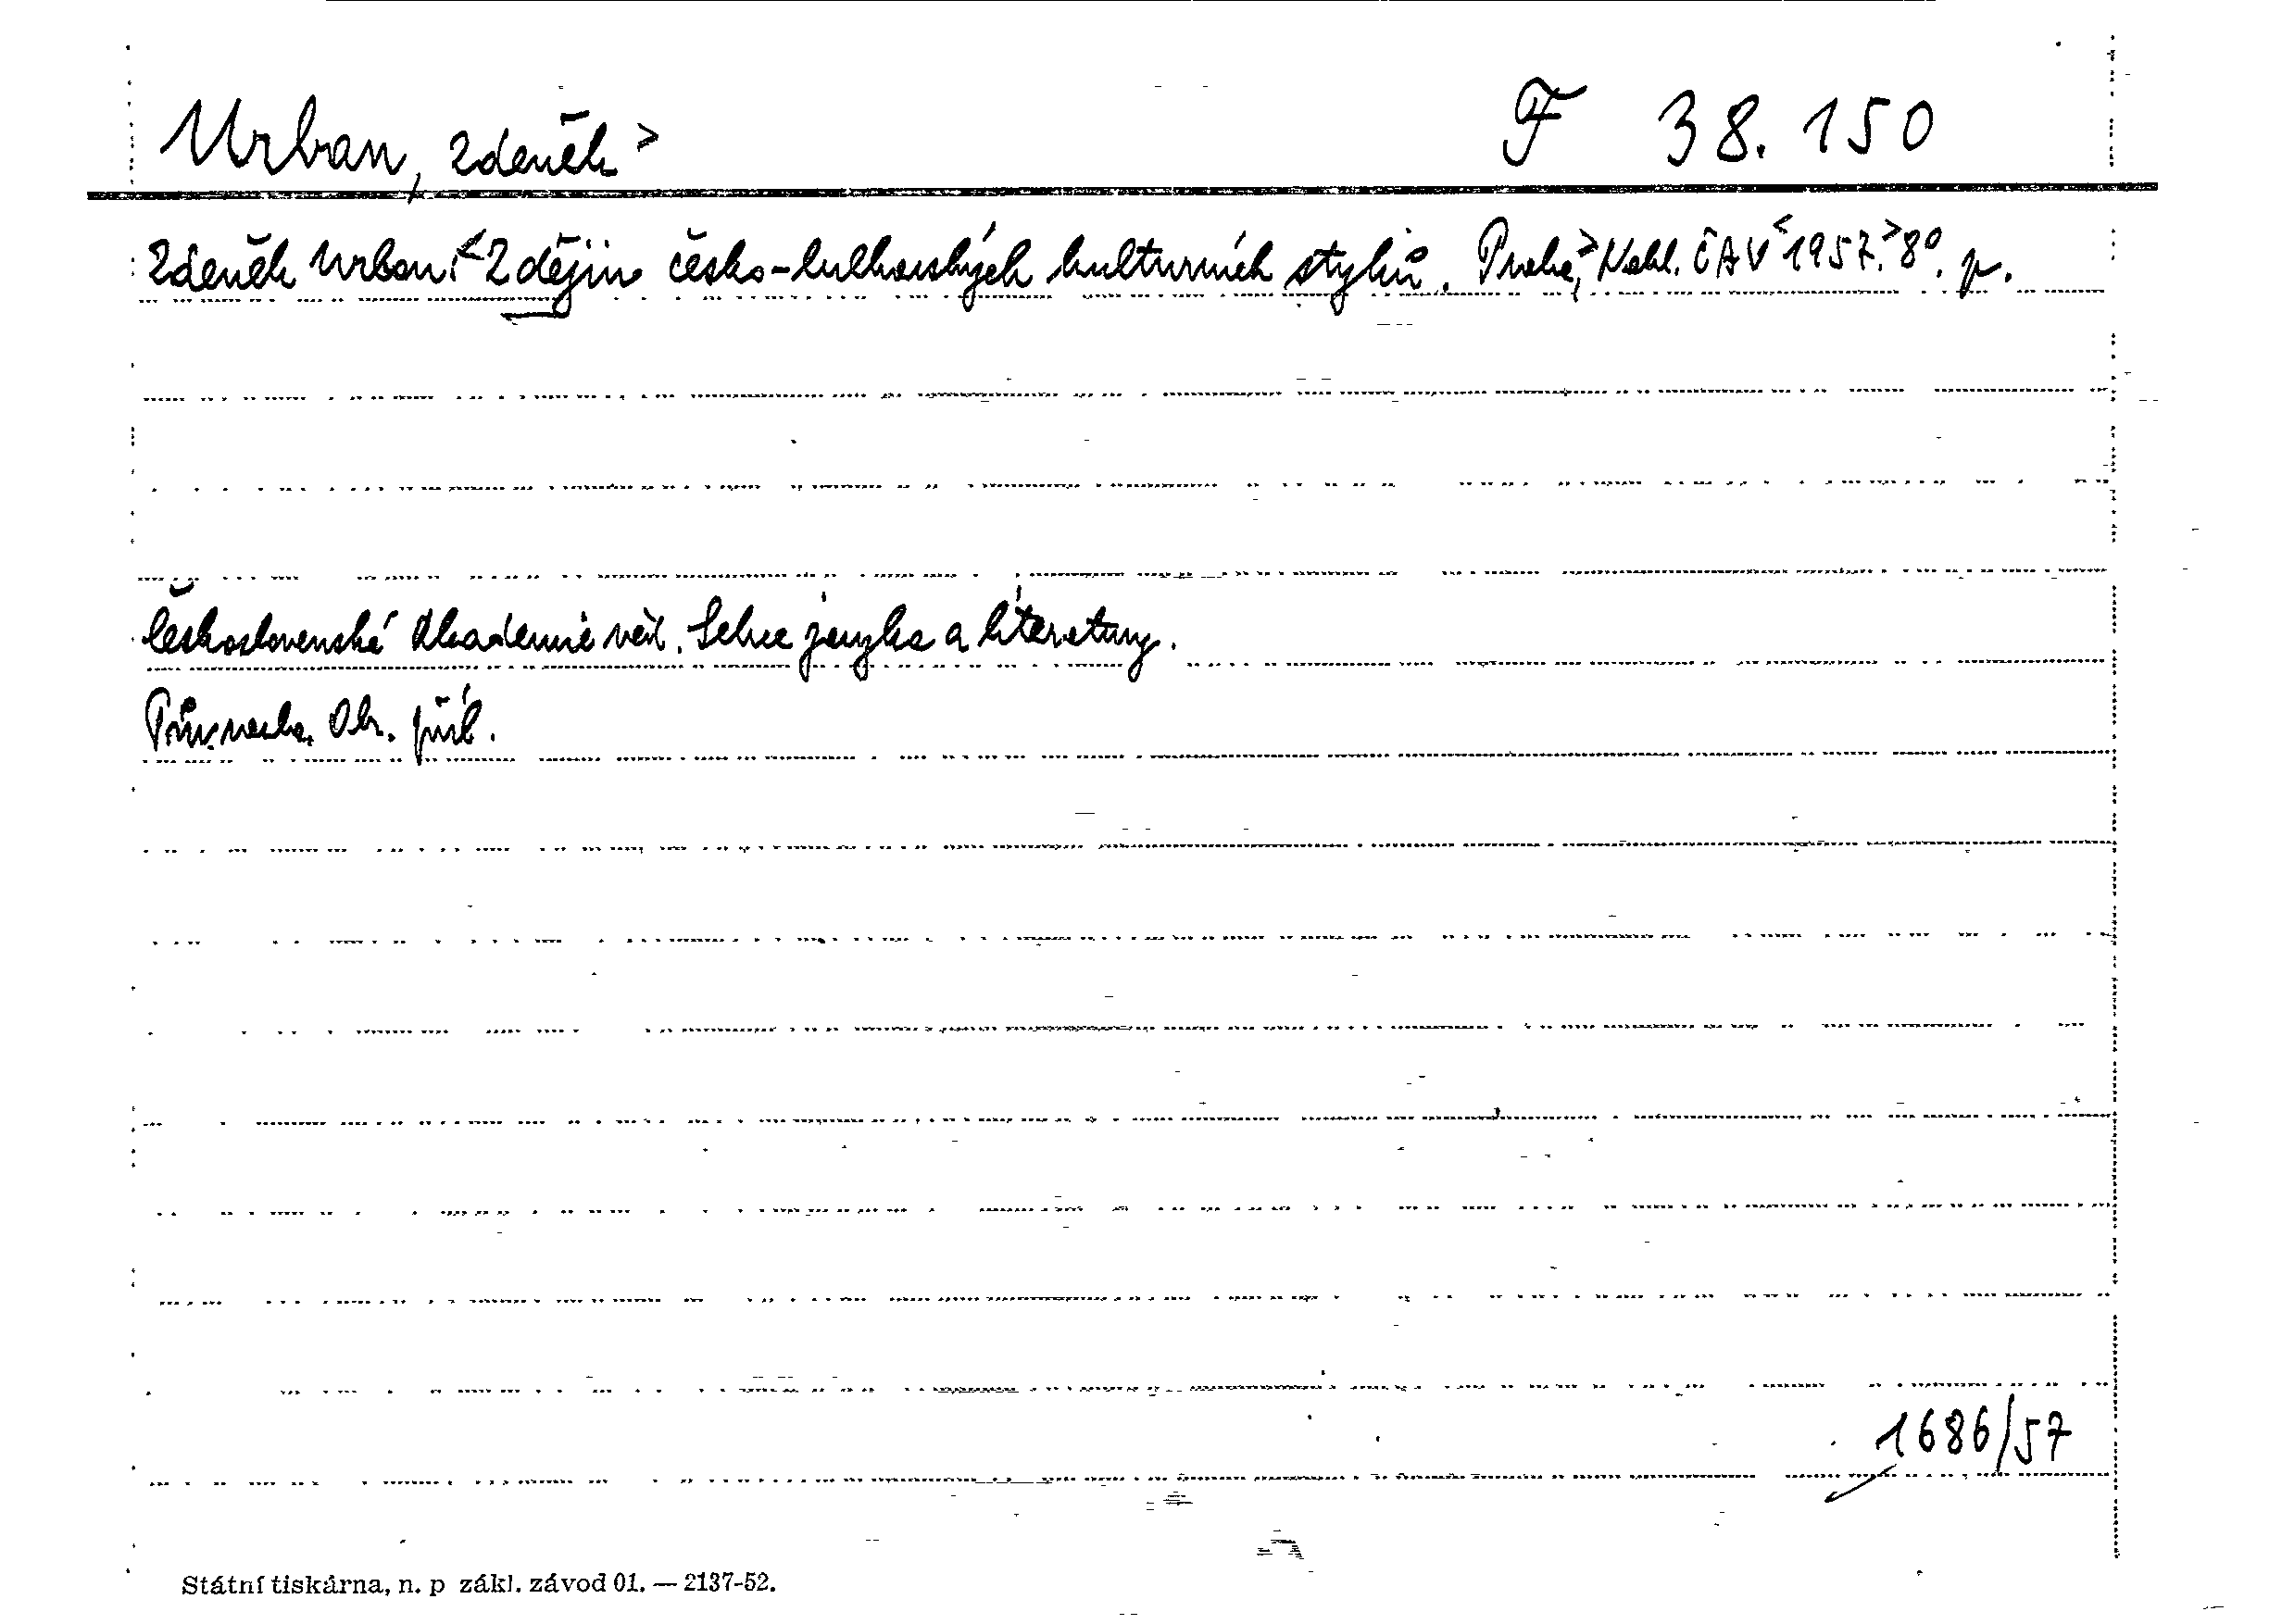 Urban, Zdeněk > F 38.150
Zdeněk Urban: <Z dějin česko-bulharských kulturních styků. Praha,> Nakl. ČAV <1957.> 8°. p.
Československá Akademie věd. Sekce jazyka a literatury.
Pův. Obr. příl.
1686/57
Státní tiskárna, n. p zákl. závod 01. — 2137-52.